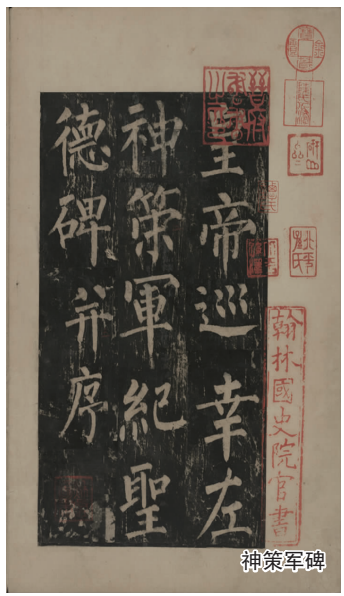 皇帝巡幸左
神策軍紀聖
德碑并序
翰林國史院官書
神策军碑